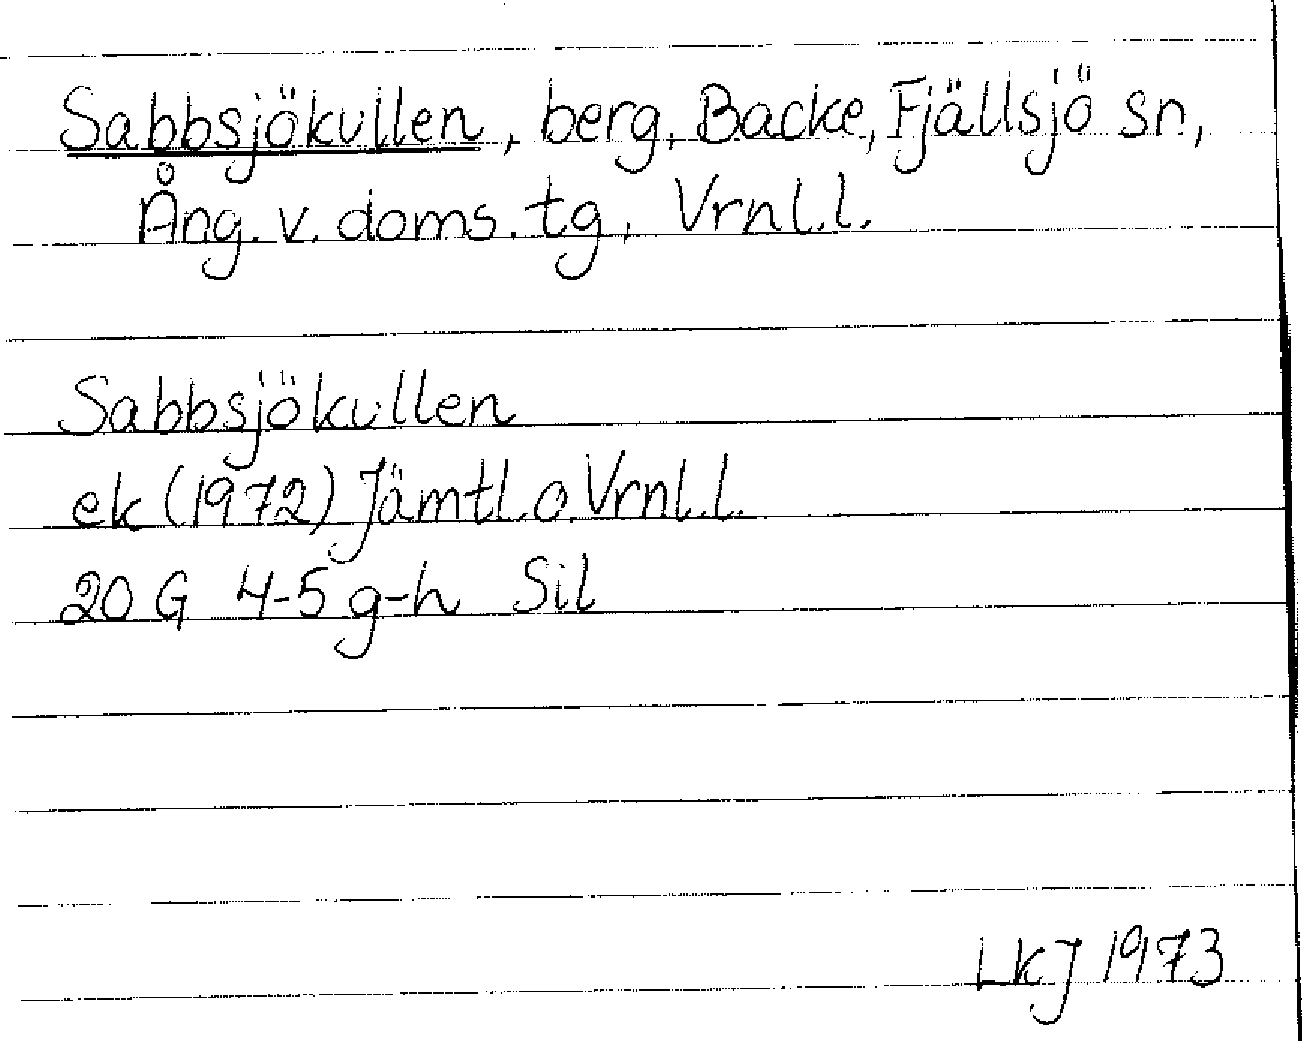 Sabbsjökullen, berg, Backe, Fjällsjö sn,
Ång. v. doms. tg, Vrnl.l.
Sabbsjökullen
ek (1972) Jämtl. o. Vrnl.l.
20 G 4-5 g-h Sil
LKJ 1973